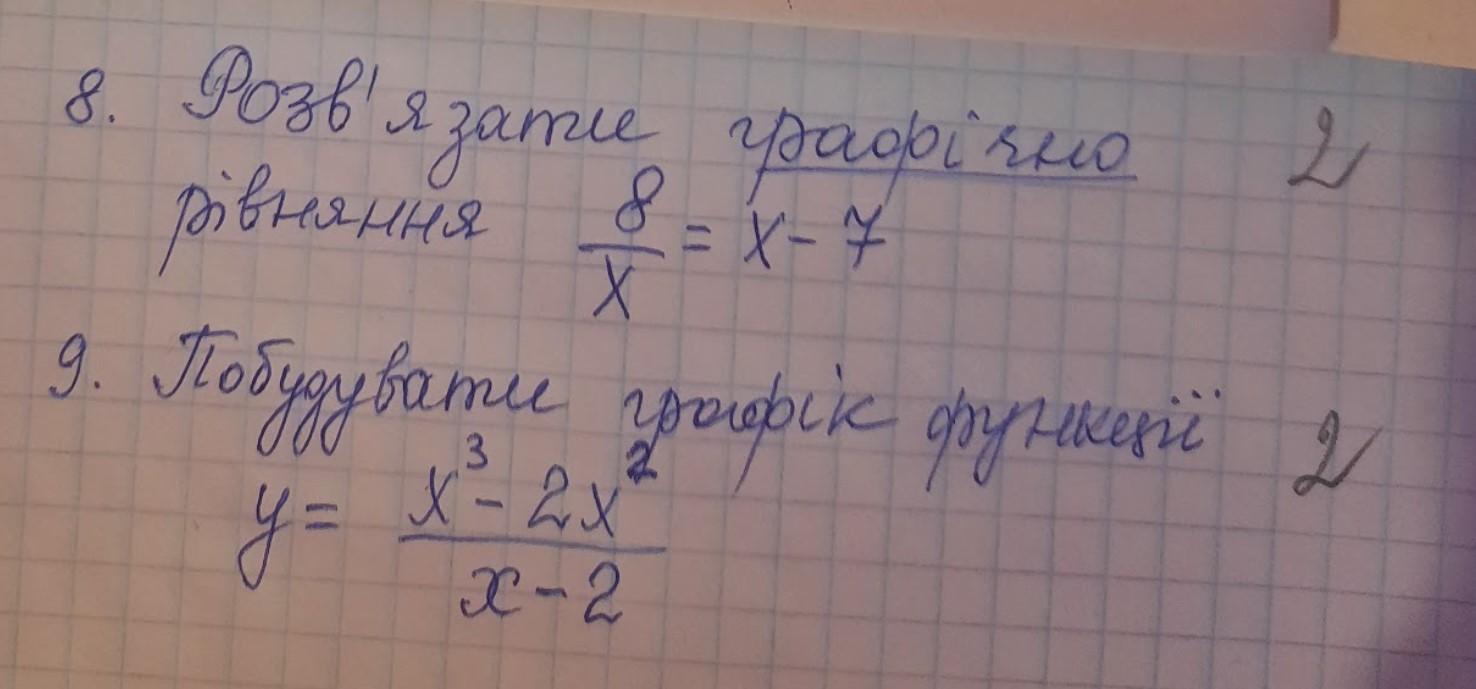 8. Розв'язати графічно 2
рівняння 8/x = x - 7
9. Побудувати графік функції 2
y = (x³ - 2x²)/(x - 2)